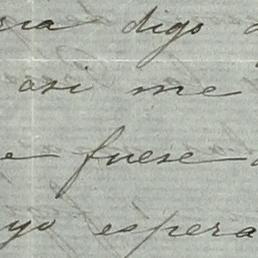 digo
asi me
fuese
yo espera